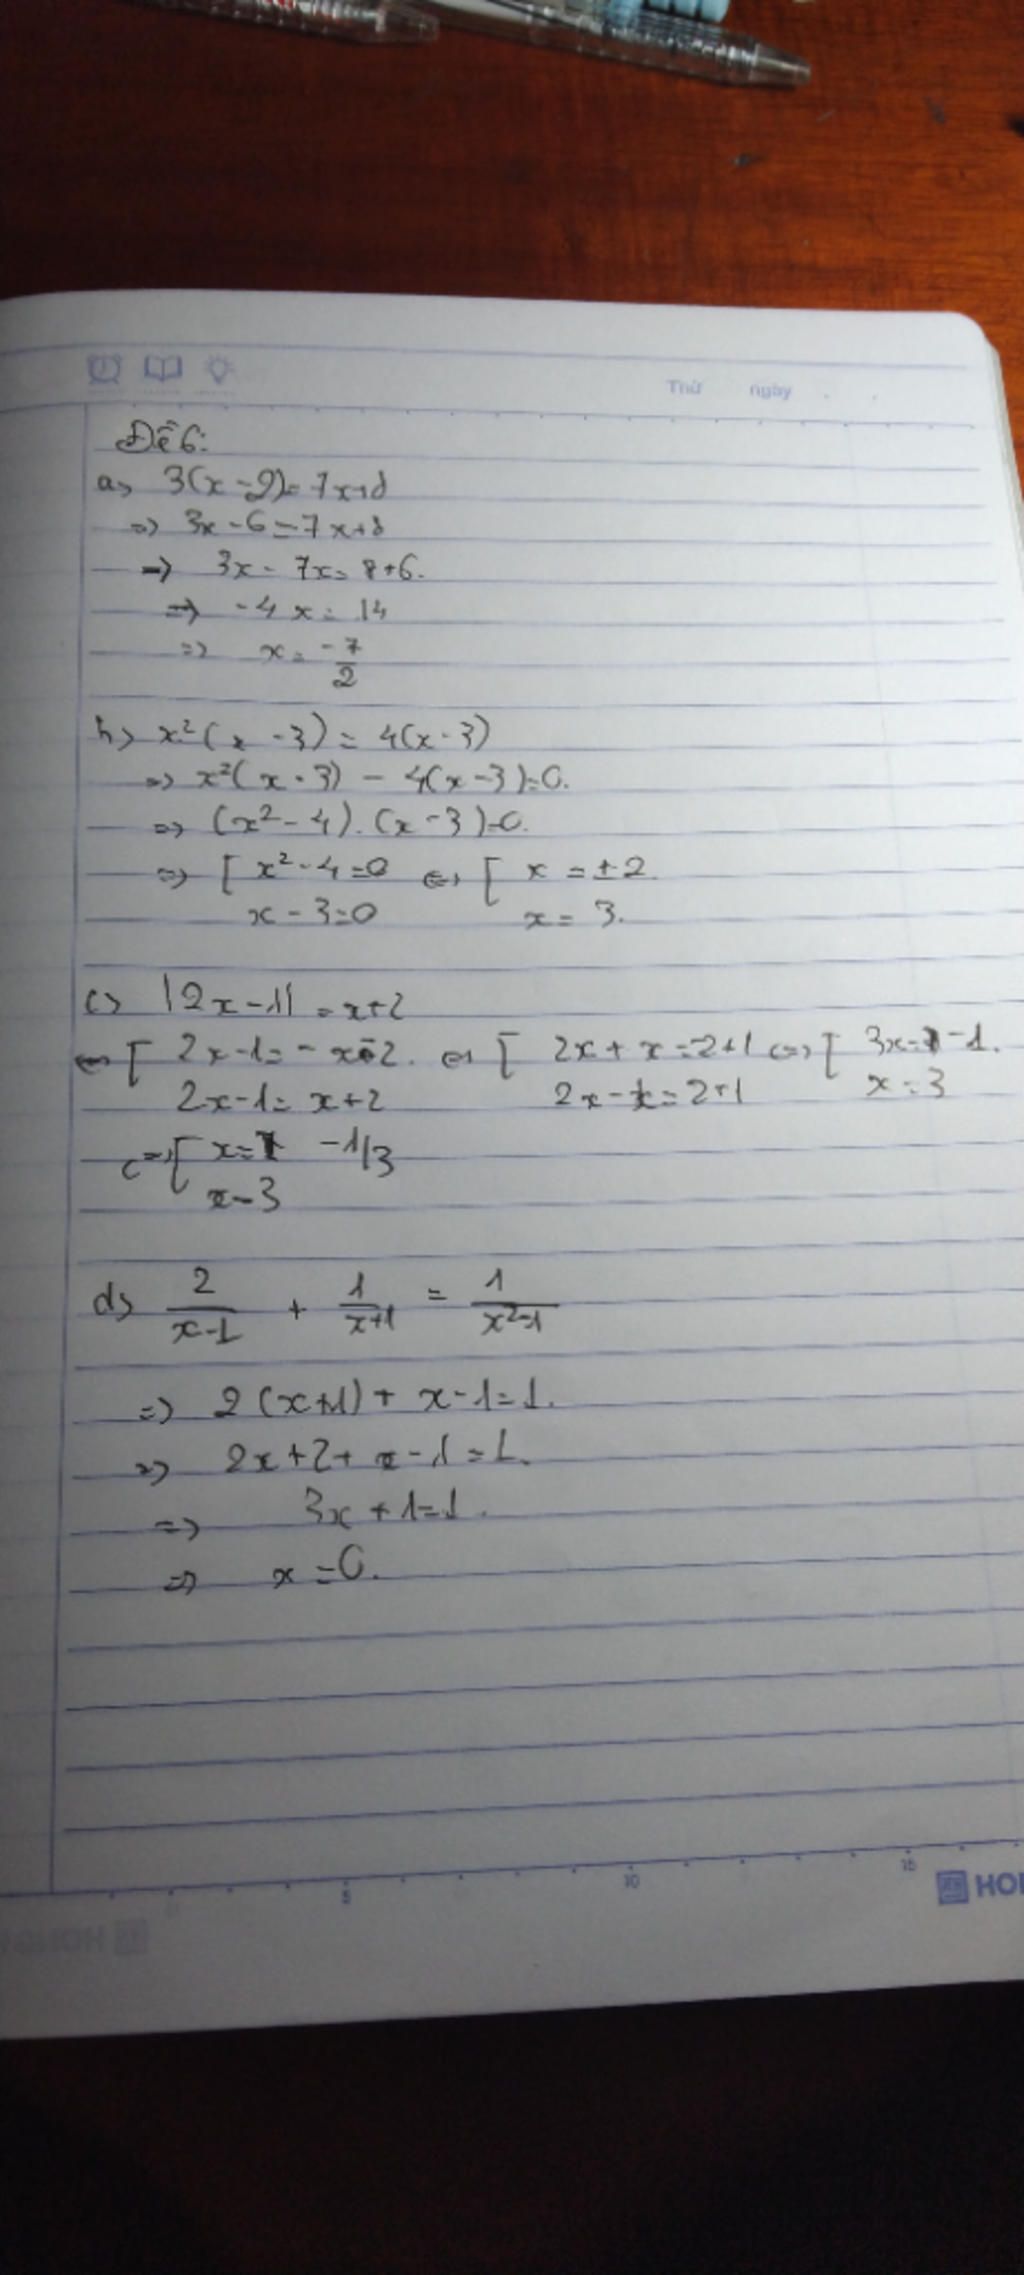 Thứ ngày . .
Đề 6:
a, 3(x - 2) = 7x+8
=> 3x - 6 = 7x+8
=> 3x - 7x = 8+6.
=> -4x = 14
=> x = -7/2
b> x²(x - 3) = 4(x - 3)
=> x²(x - 3) - 4(x - 3) = 0.
=> (x² - 4).(x - 3) = 0.
=> [ x² - 4 = 0 <=> [ x = ±2.
x - 3 = 0 x = 3.
c> |2x - 1| = x+2
<=> [ 2x - 1 = -x - 2. <=> [ 2x + x = -2+1 <=> [ 3x = -1.
2x - 1 = x+2 2x - x = 2+1 x = 3
<=> [ x = -1/3
x = 3
d> 2/(x-1) + 1/(x+1) = 1/(x²-1)
=> 2(x+1) + x - 1 = 1.
=> 2x+2+ x - 1 = 1.
=> 3x + 1 = 1.
=> x = 0.
5 10 15